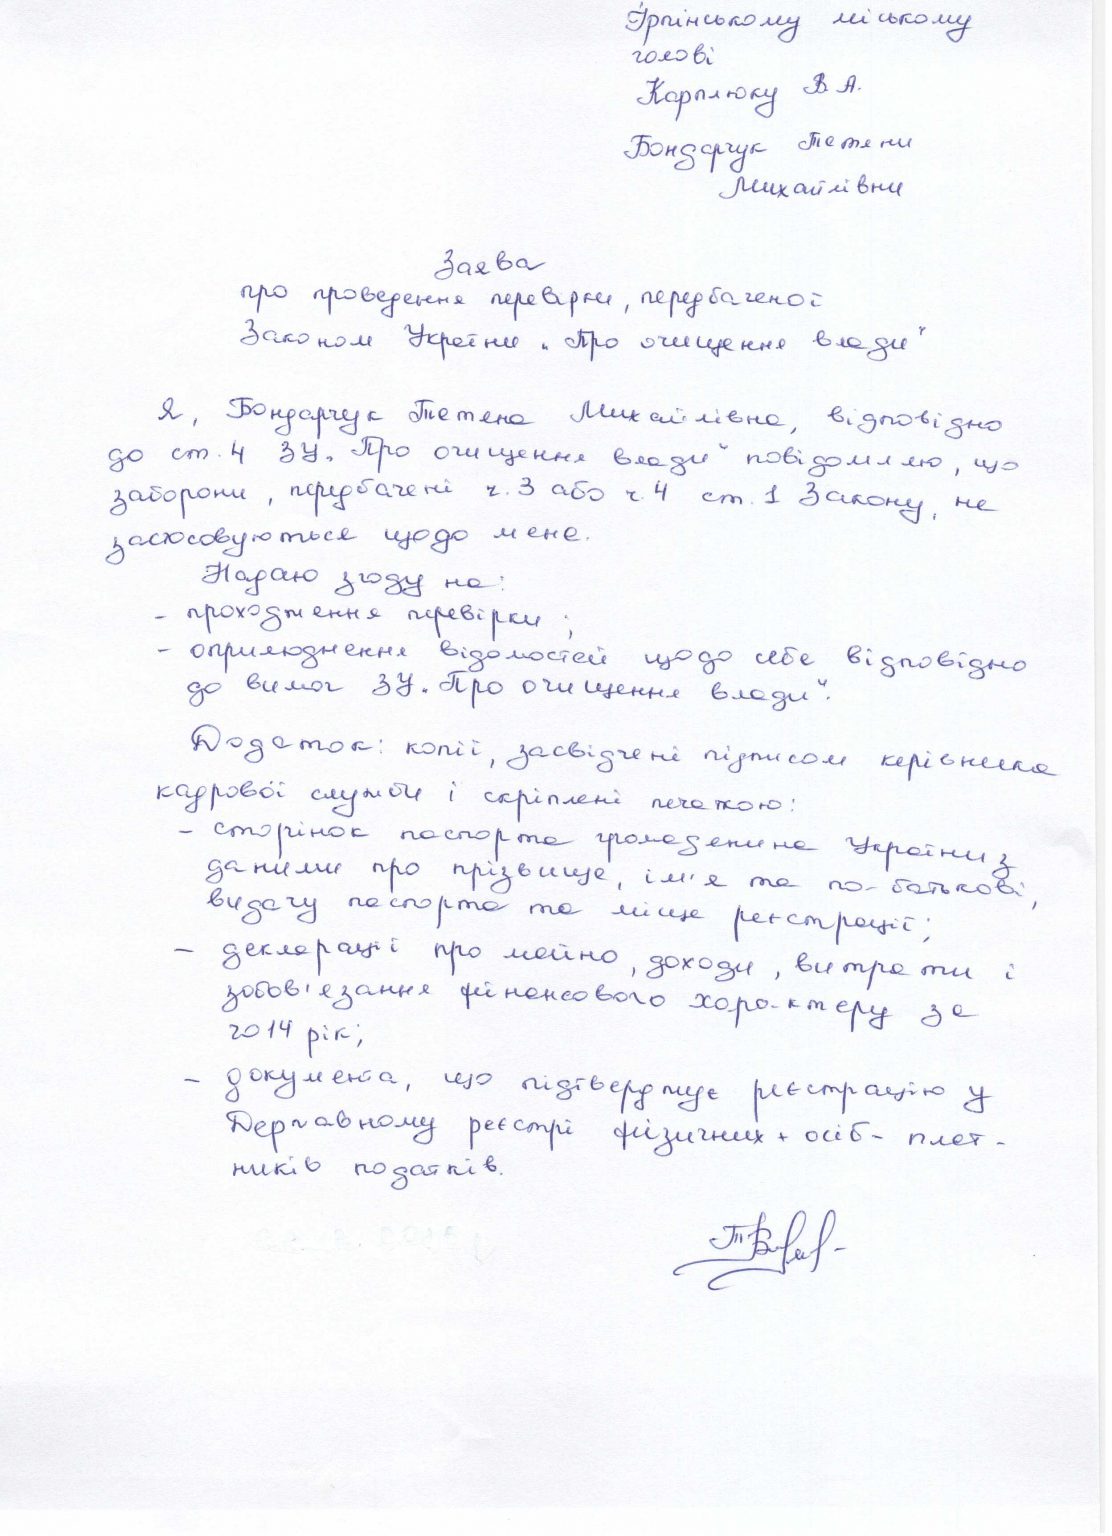 Ірпінському міському
голові
Карплюку В.А.
Бондарчук Тетяни
Михайлівни
Заява
про проведення перевірки, передбаченої
Законом України „Про очищення влади"
Я, Бондарчук Тетяна Михайлівна, відповідно
до ст. 4 ЗУ „Про очищення влади" повідомляю, що
заборони, передбачені ч.3 або ч.4 ст.1 Закону, не
застосовуються щодо мене.
Надаю згоду на:
- проходження перевірки;
- оприлюднення відомостей щодо себе відповідно
до вимог ЗУ „Про очищення влади".
Додаток: копії, засвідчені підписом керівника
кадрової служби і скріплені печаткою:
- сторінок паспорта громадянина України з
даними про прізвище, ім'я та по-батькові,
видачу паспорта та місце реєстрації;
- декларації про майно, доходи, витрати і
зобов'язання фінансового характеру за
2014 рік;
- документа, що підтверджує реєстрацію у
Державному реєстрі фізичних осіб- плат-
ників податків.